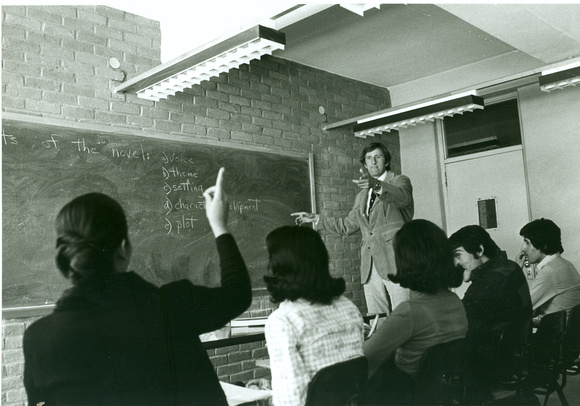 ts of the novel:
a) voice
b) theme
c) setting
d) character development
e) plot